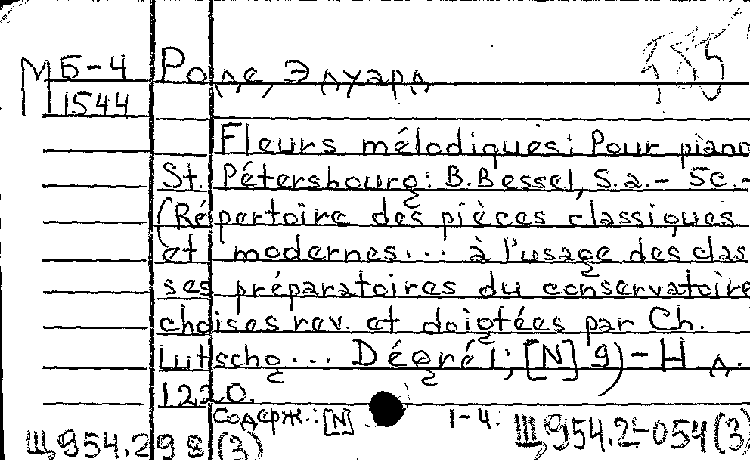 М Б-4
1544
Роде, Эдуард
585
Fleurs mélodiques: Pour piano
St. Pétersbourg: B. Bessel, S.a.- 5c.-
(Répertoire des pièces classiques
et modernes... à l'usage des clas
ses préparatoires du conservatoire
choises rev. et doigtées par Ch.
Lutscho... Degré 1; [N] 9) - Н д.
1220.
Содерж.: [N] 1-4.
Щ954.298(3)
Щ954.2-054(3)